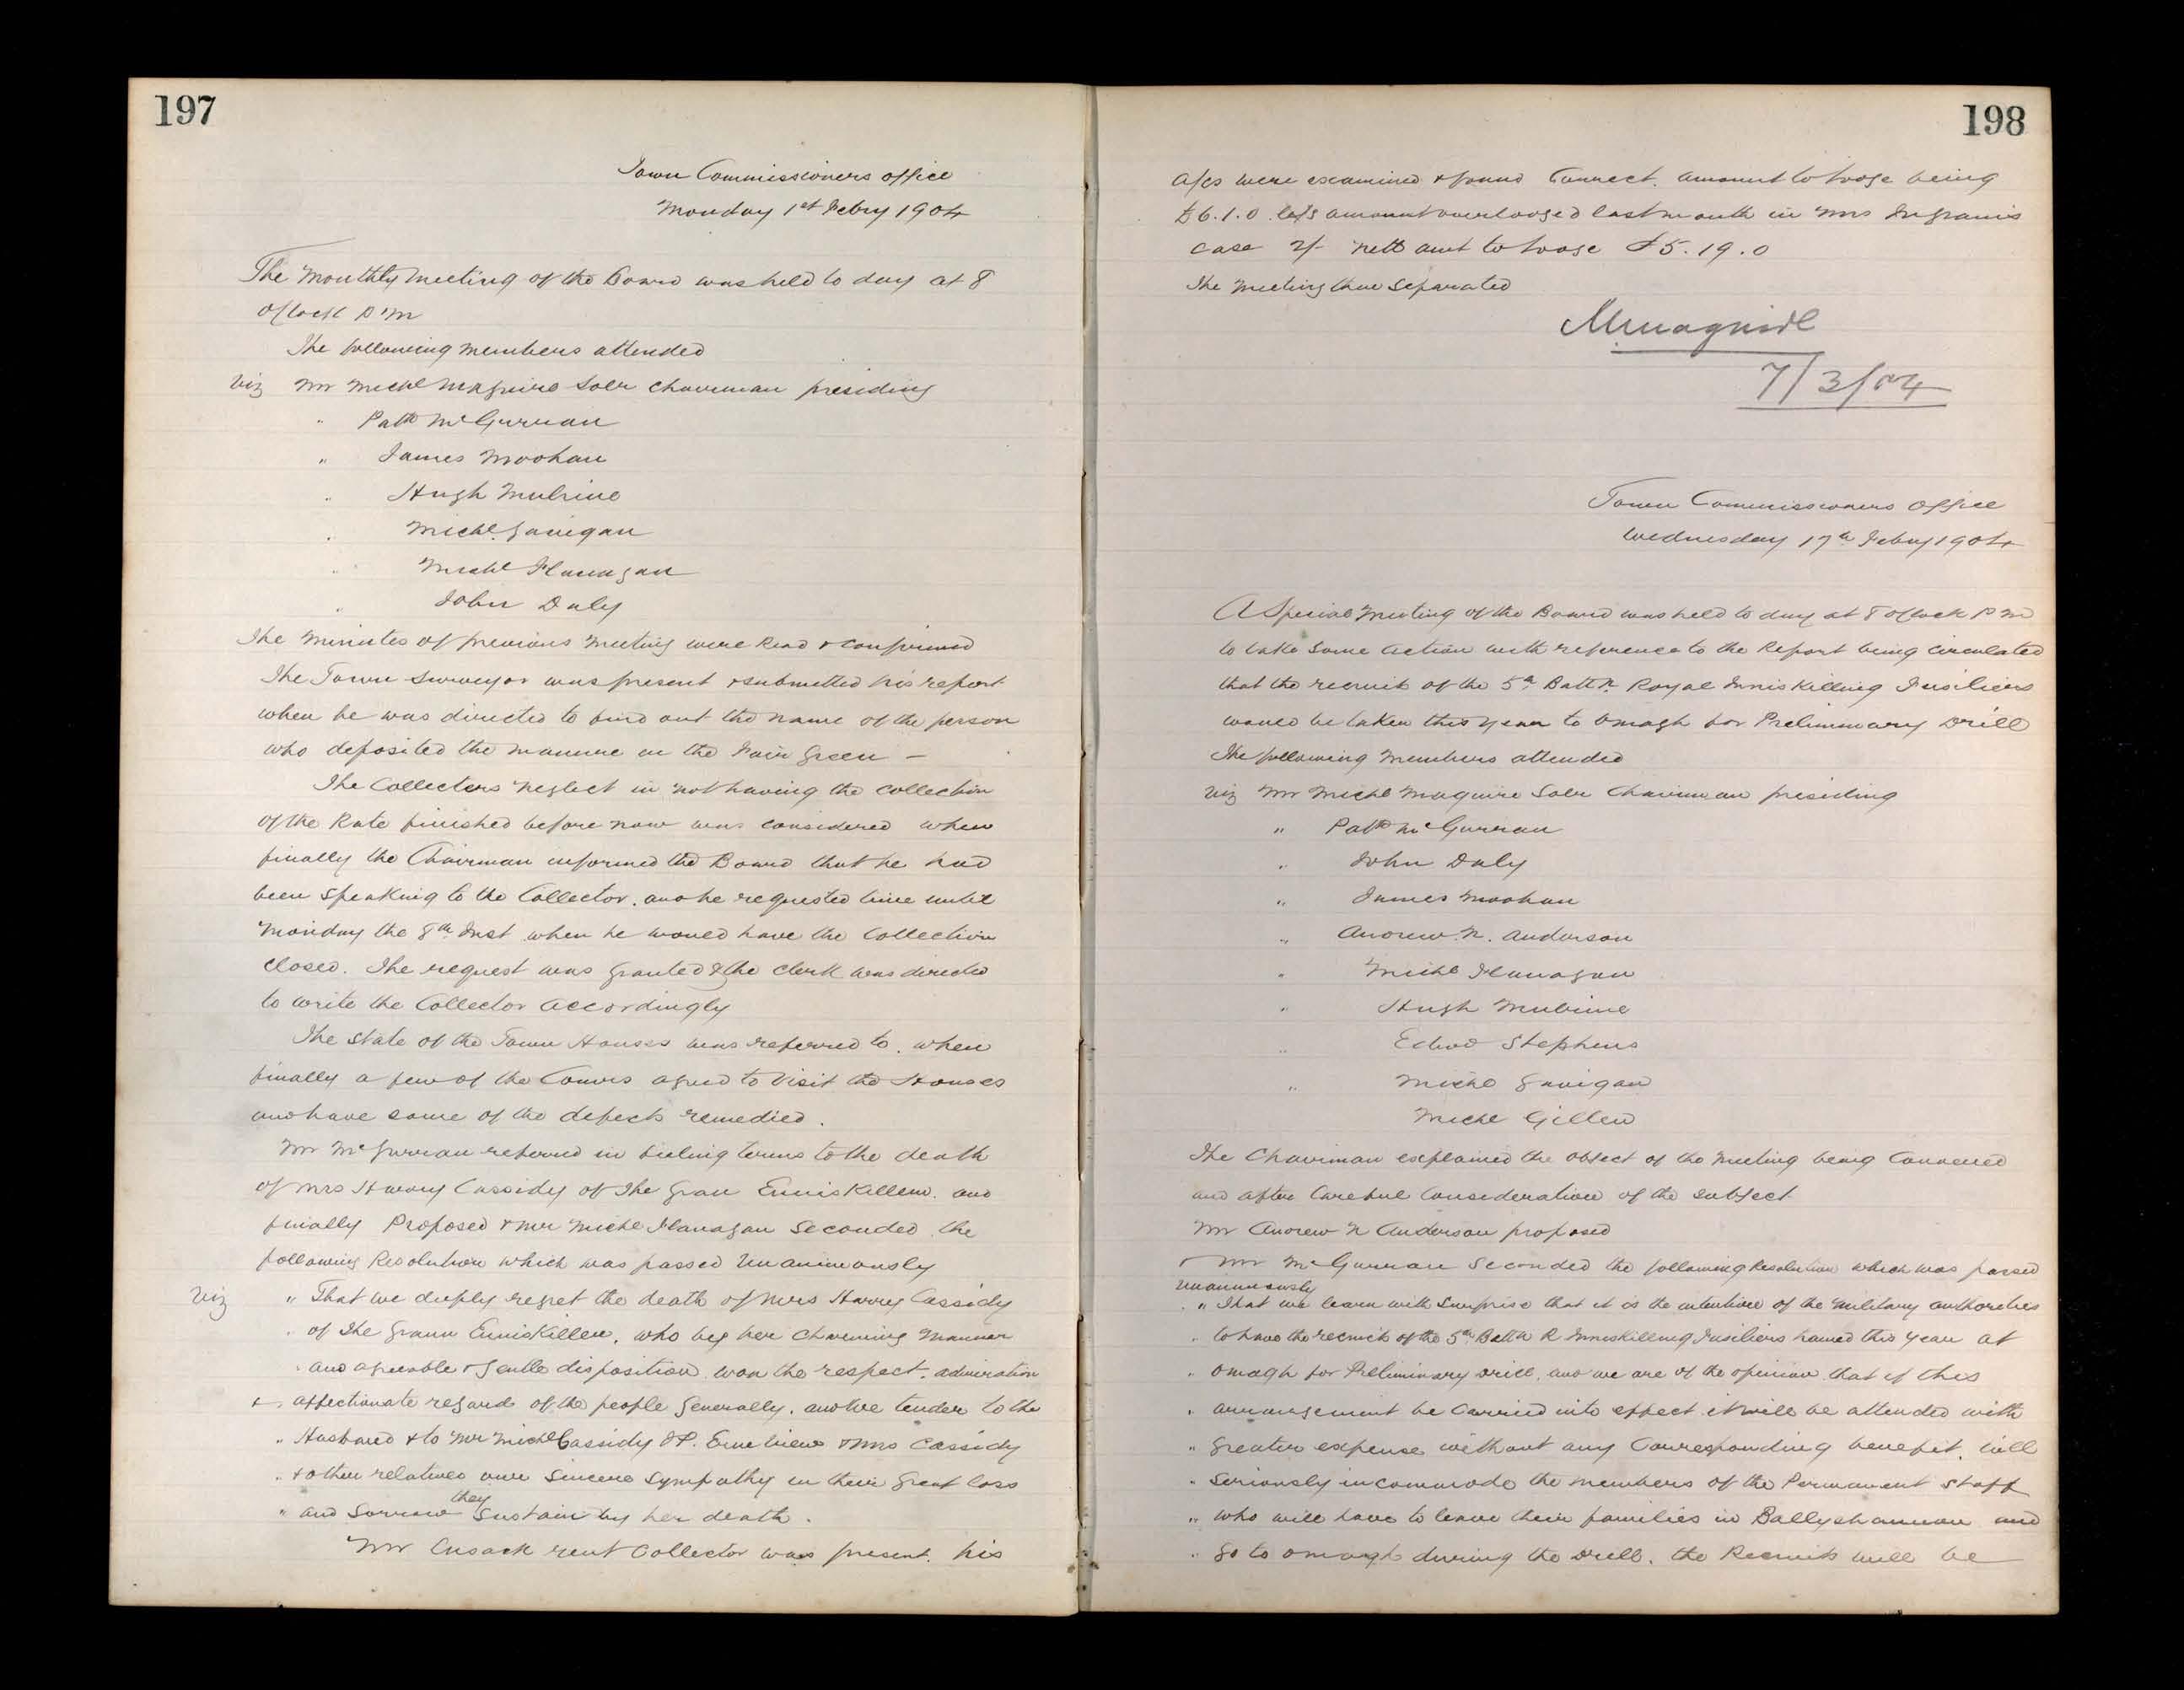 197
Town Commissioners office
Monday 1st Febry 1904
The Monthly Meeting of the Board was held to day at 8
oClock P.M
The following Members attended
Viz Mr Michl Maguire Solr Chairman presiding
" Patk McGurran
" James Moohan
" Hugh Mulrine
" Michl Gavigan
" Michl Flanagan
" John Daly
The Minutes of previous Meeting were Read & confirmed
The Town Surveyor was present & submitted his report
when he was directed to find out the name of the person
who deposited the manure on the Fair Green —
The Collectors neglect in not having the collection
of the Rate finished before now was considered when
finally the Chairman informed the Board that he had
been speaking to the Collector, and he requested time until
Monday the 8th Inst when he would have the Collection
closed. The request was granted & the Clerk was directed
to write the Collector Accordingly
The state of the Town Houses was referred to, when
finally a few of the Comrs agreed to Visit the Houses
and have some of the defects remedied.
Mr McGurran referred in feeling terms to the death
of Mrs Harry Cassidy of The Graan Enniskillen. and
finally Proposed & Mr Michl Flanagan Seconded the
following Resolution which was passed Unanimously
Viz " That we deeply regret the death of Mrs Harry Cassidy
" of The Graan Enniskillen, who by her Charming Manner
" and agreeable & Gentle disposition won the respect, admiration
& " affectionate regard of the people generally. and we tender to the
" Husband & to Mr Michl Cassidy JP. Erne View & Mrs Cassidy
" & other relatives our Sincere Sympathy in their great loss
" and Sorrow they Sustain by her death.
Mr Cusack rent Collector was present. his
198
a/cs were examined & found Correct. amount to lodge being
£6.1.0 less amount overlodged last month in Mrs Ingrams
case 2/- nett amt to lodge £5.19.0
The Meeting then Separated
MMaguire
7/3/04
Town Commissioners Office
Wednesday 17th Febry 1904
A Special Meeting of the Board was held to day at 8 oClock P M
to take Some Action with reference to the Report being Circulated
that the recruits of the 5th Battn Royal Inniskilling Fusiliers
would be taken this year to Omagh for Preliminary Drill
The following Members attended
Viz Mr Michl Maguire Solr Chairman presiding
" Patk McGurran
" John Daly
" James Moohan
" Andrew N. Anderson
" Michl Flanagan
" Hugh Mulrine
" Edwd Stephens
" Michl Gavigan
Michl Gillen
The Chairman explained the object of the Meeting being Convened
and after Careful Consideration of the subject
Mr Andrew N Anderson proposed
& Mr McGurran Seconded the following Resolution which was passed
Unanimously
" That we learn with Surprise that it is the intention of the Military authorities
" to have the recruits of the 5th Battn R Inniskilling Fusiliers trained this year at
" Omagh for Preliminary Drill, and we are of the opinion that if this
" arrangement be Carried into effect it will be attended with
" greater expense without any Corresponding benefit, will
" Seriously incommode the members of the Permanent Staff
" who will have to leave their families in Ballyshannon and
" go to Omagh during the Drill. the Recruits will be